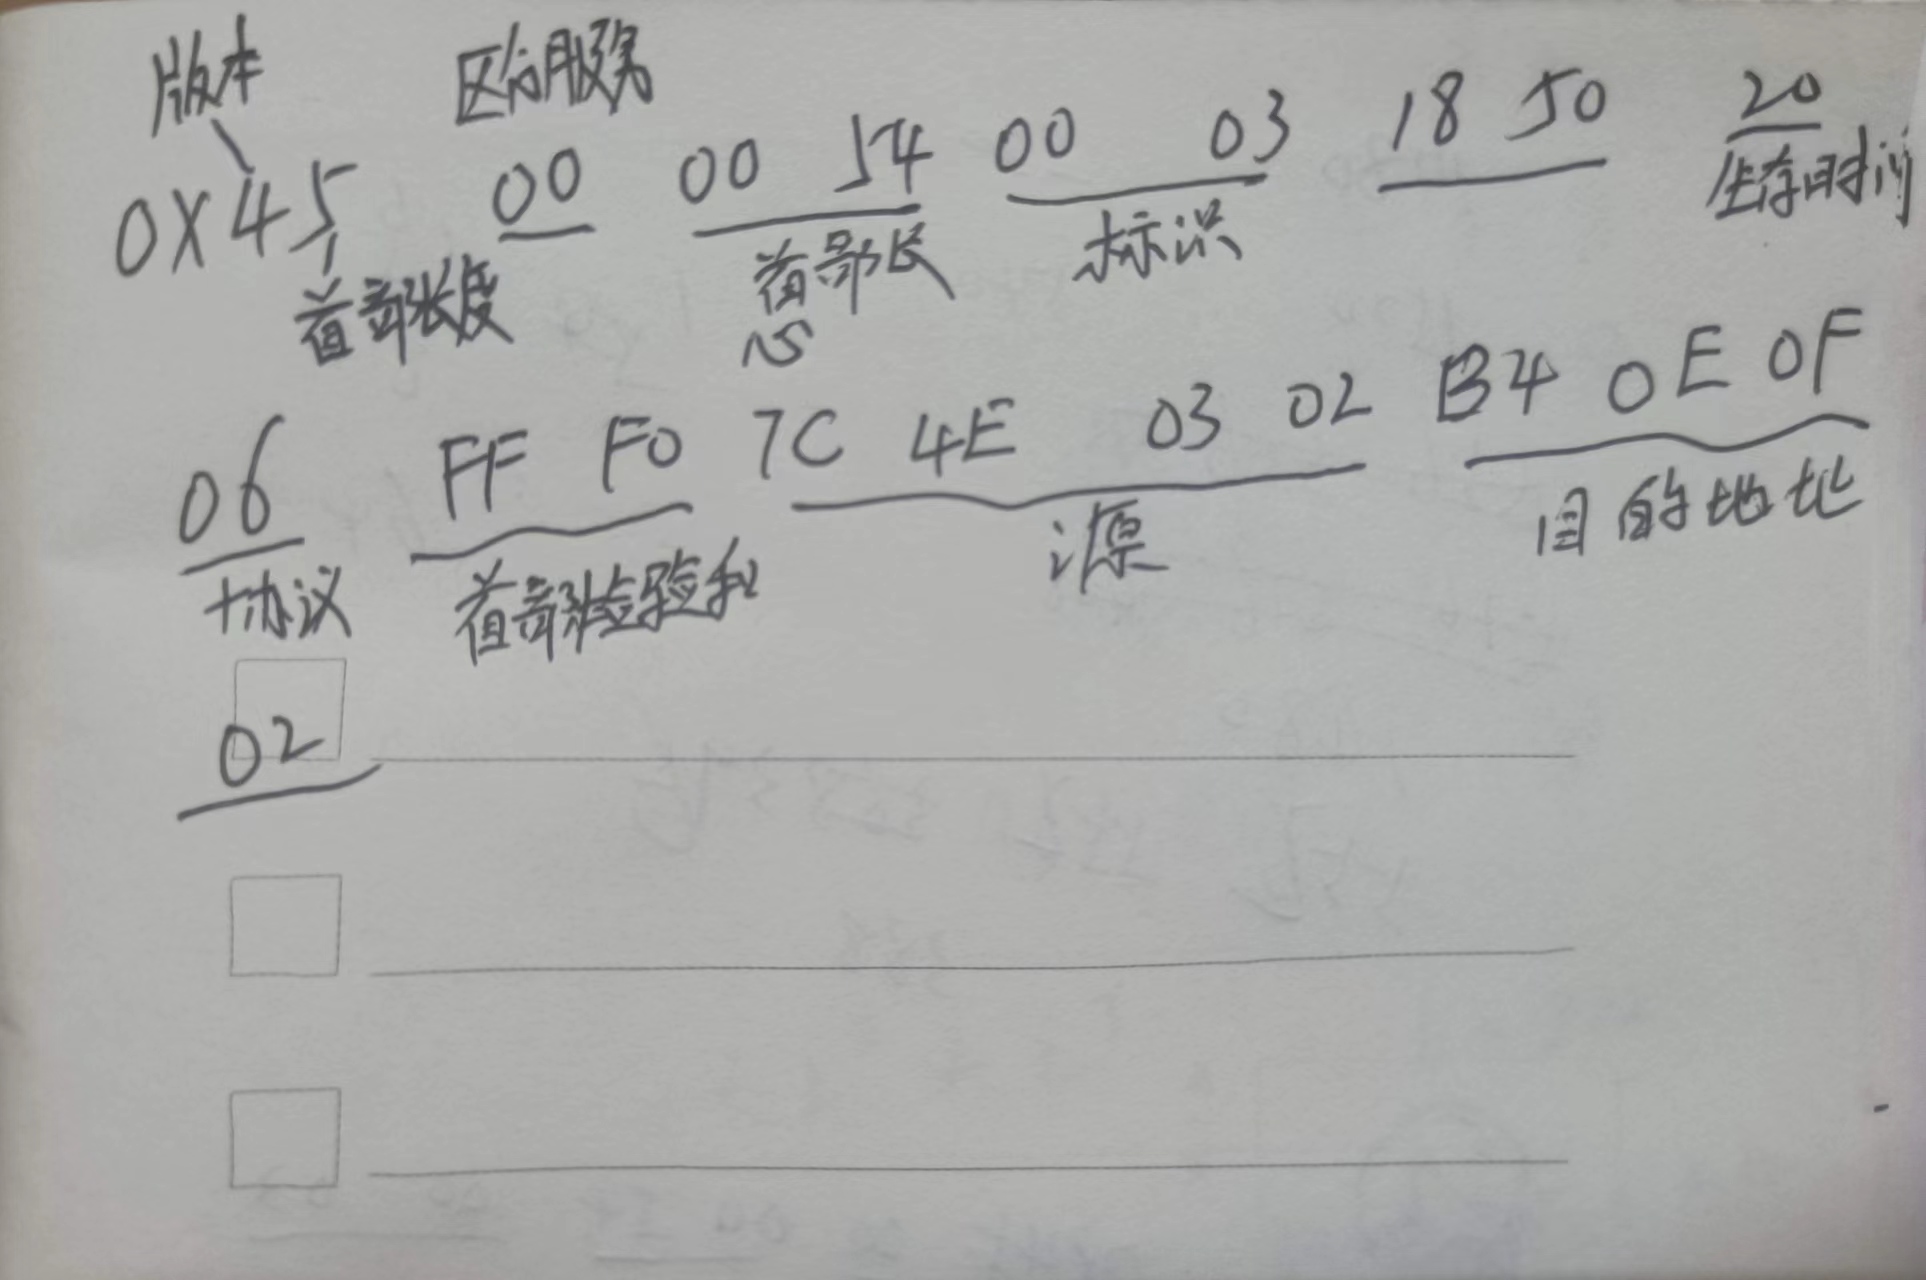 版本 区分服务
0X45 00 00 54 00 03 18 50 20
首部长度 首部长 标识 生存时间
总
06 FF F0 7C 4E 03 02 B4 0E 0F
协议 首部检验和 源 目的地址
02